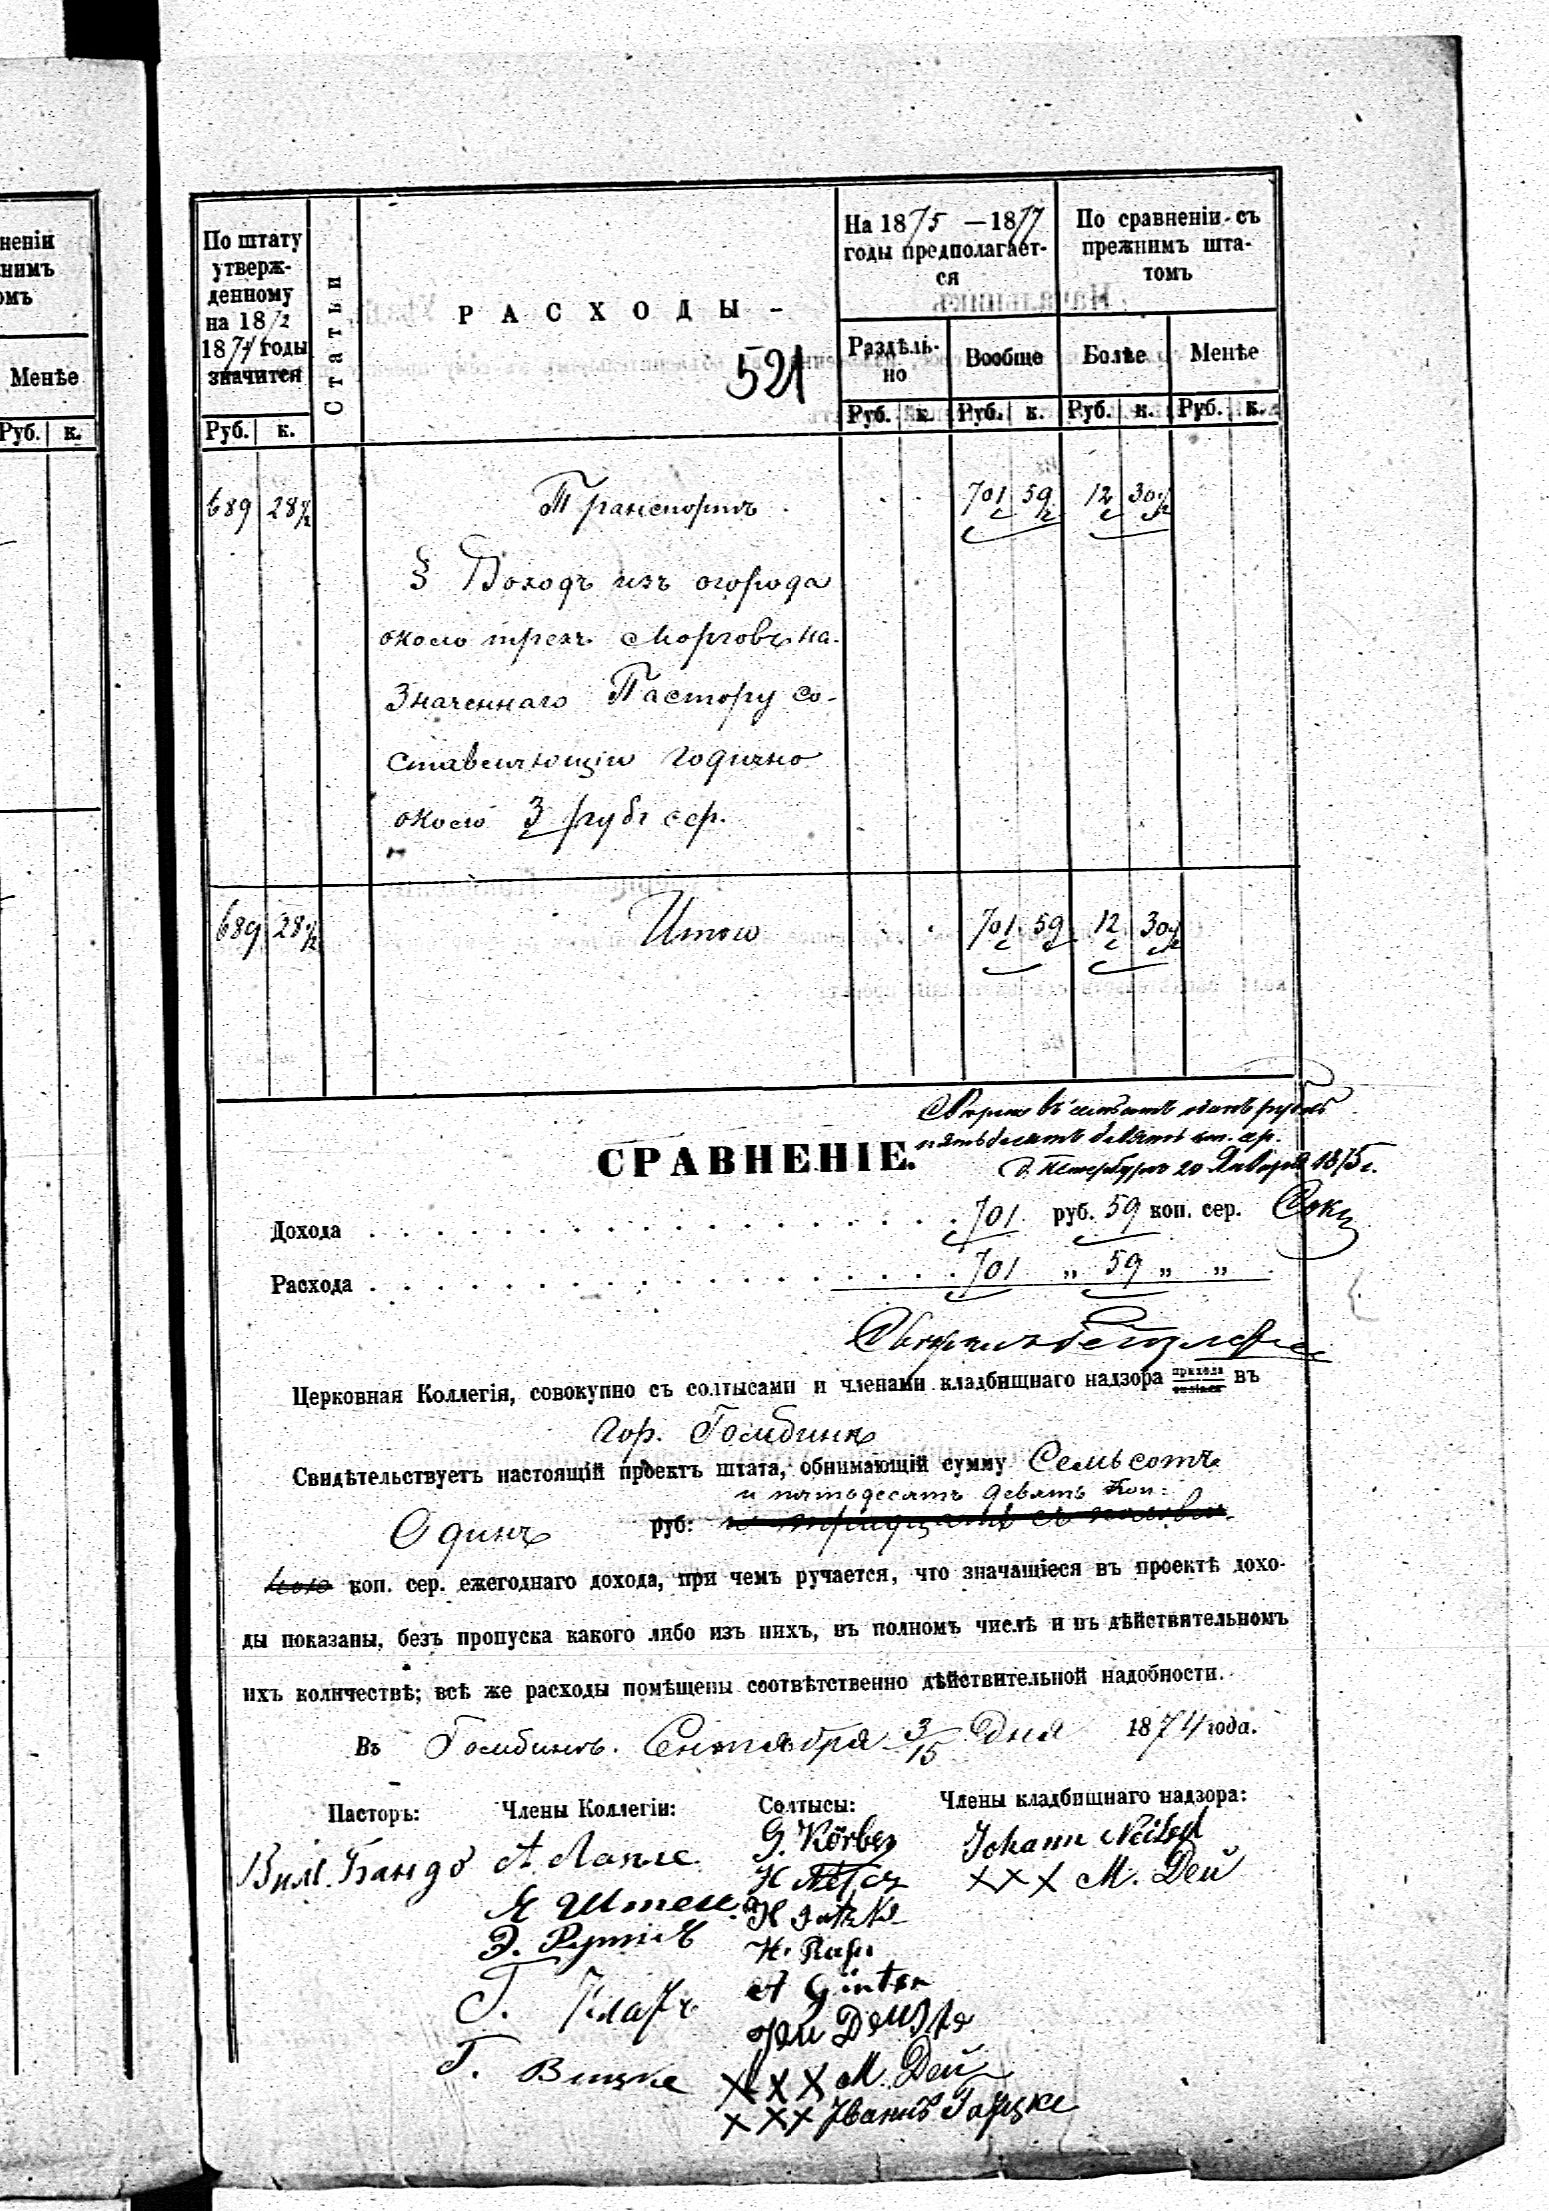 неніи
нимъ
омъ
Менѣе
Руб. к.
По штату
утверж-
денному
на 1872
1874 годы
значится
Статьи
РАСХОДЫ
521
На 1875 — 1877
годы предполагает-
ся
По сравненіи съ
прежнимъ шта-
томъ
Раздѣль-
но
Вообще
Болѣе
Менѣе
Руб. к.
Руб. к. Руб. к. Руб. к. Руб. к.
689 28½ Транспортъ 701 59 12 30½
§ Доходъ изъ огорода
около трехъ Морговъ на-
значеннаго Пастору со-
ставляющій годично
около 3 руб сер.
689 28½ Итого 701 59 12 30½
семьсотъ одинъ рубль
пятьдесятъ девять коп. ср.
Петербургъ 20 Января 1875 г.
СРАВНЕНІЕ.
Дохода 701 руб. 59 коп. сер.
Расхода 701 „ 59 „ „
Церковная Коллегія, совокупно съ солтысами и членами кладбищнаго надзора прихода въ
гор. Гомбинѣ
Свидѣтельствуетъ настоящій проектъ штата, обнимающій сумму Семьсотъ
и пятьдесятъ девять Коп:
Одинъ руб:
коп. сер. ежегоднаго дохода, при чемъ ручается, что значащіеся въ проектѣ дохо-
ды показаны, безъ пропуска какого либо изъ нихъ, въ полномъ числѣ и въ дѣйствительномъ
ихъ количествѣ; всѣ же расходы помѣщены соотвѣтственно дѣйствительной надобности.
Въ Гомбинѣ. Сентября 3/15 Дня 1874 года.
Пасторъ: Члены Коллегіи: Солтысы: Члены кладбищнаго надзора:
Вил. Бандо
G. Körber
Johann
XXX М. Дей
A Günter
XXX М. Дей
XXX Иванъ